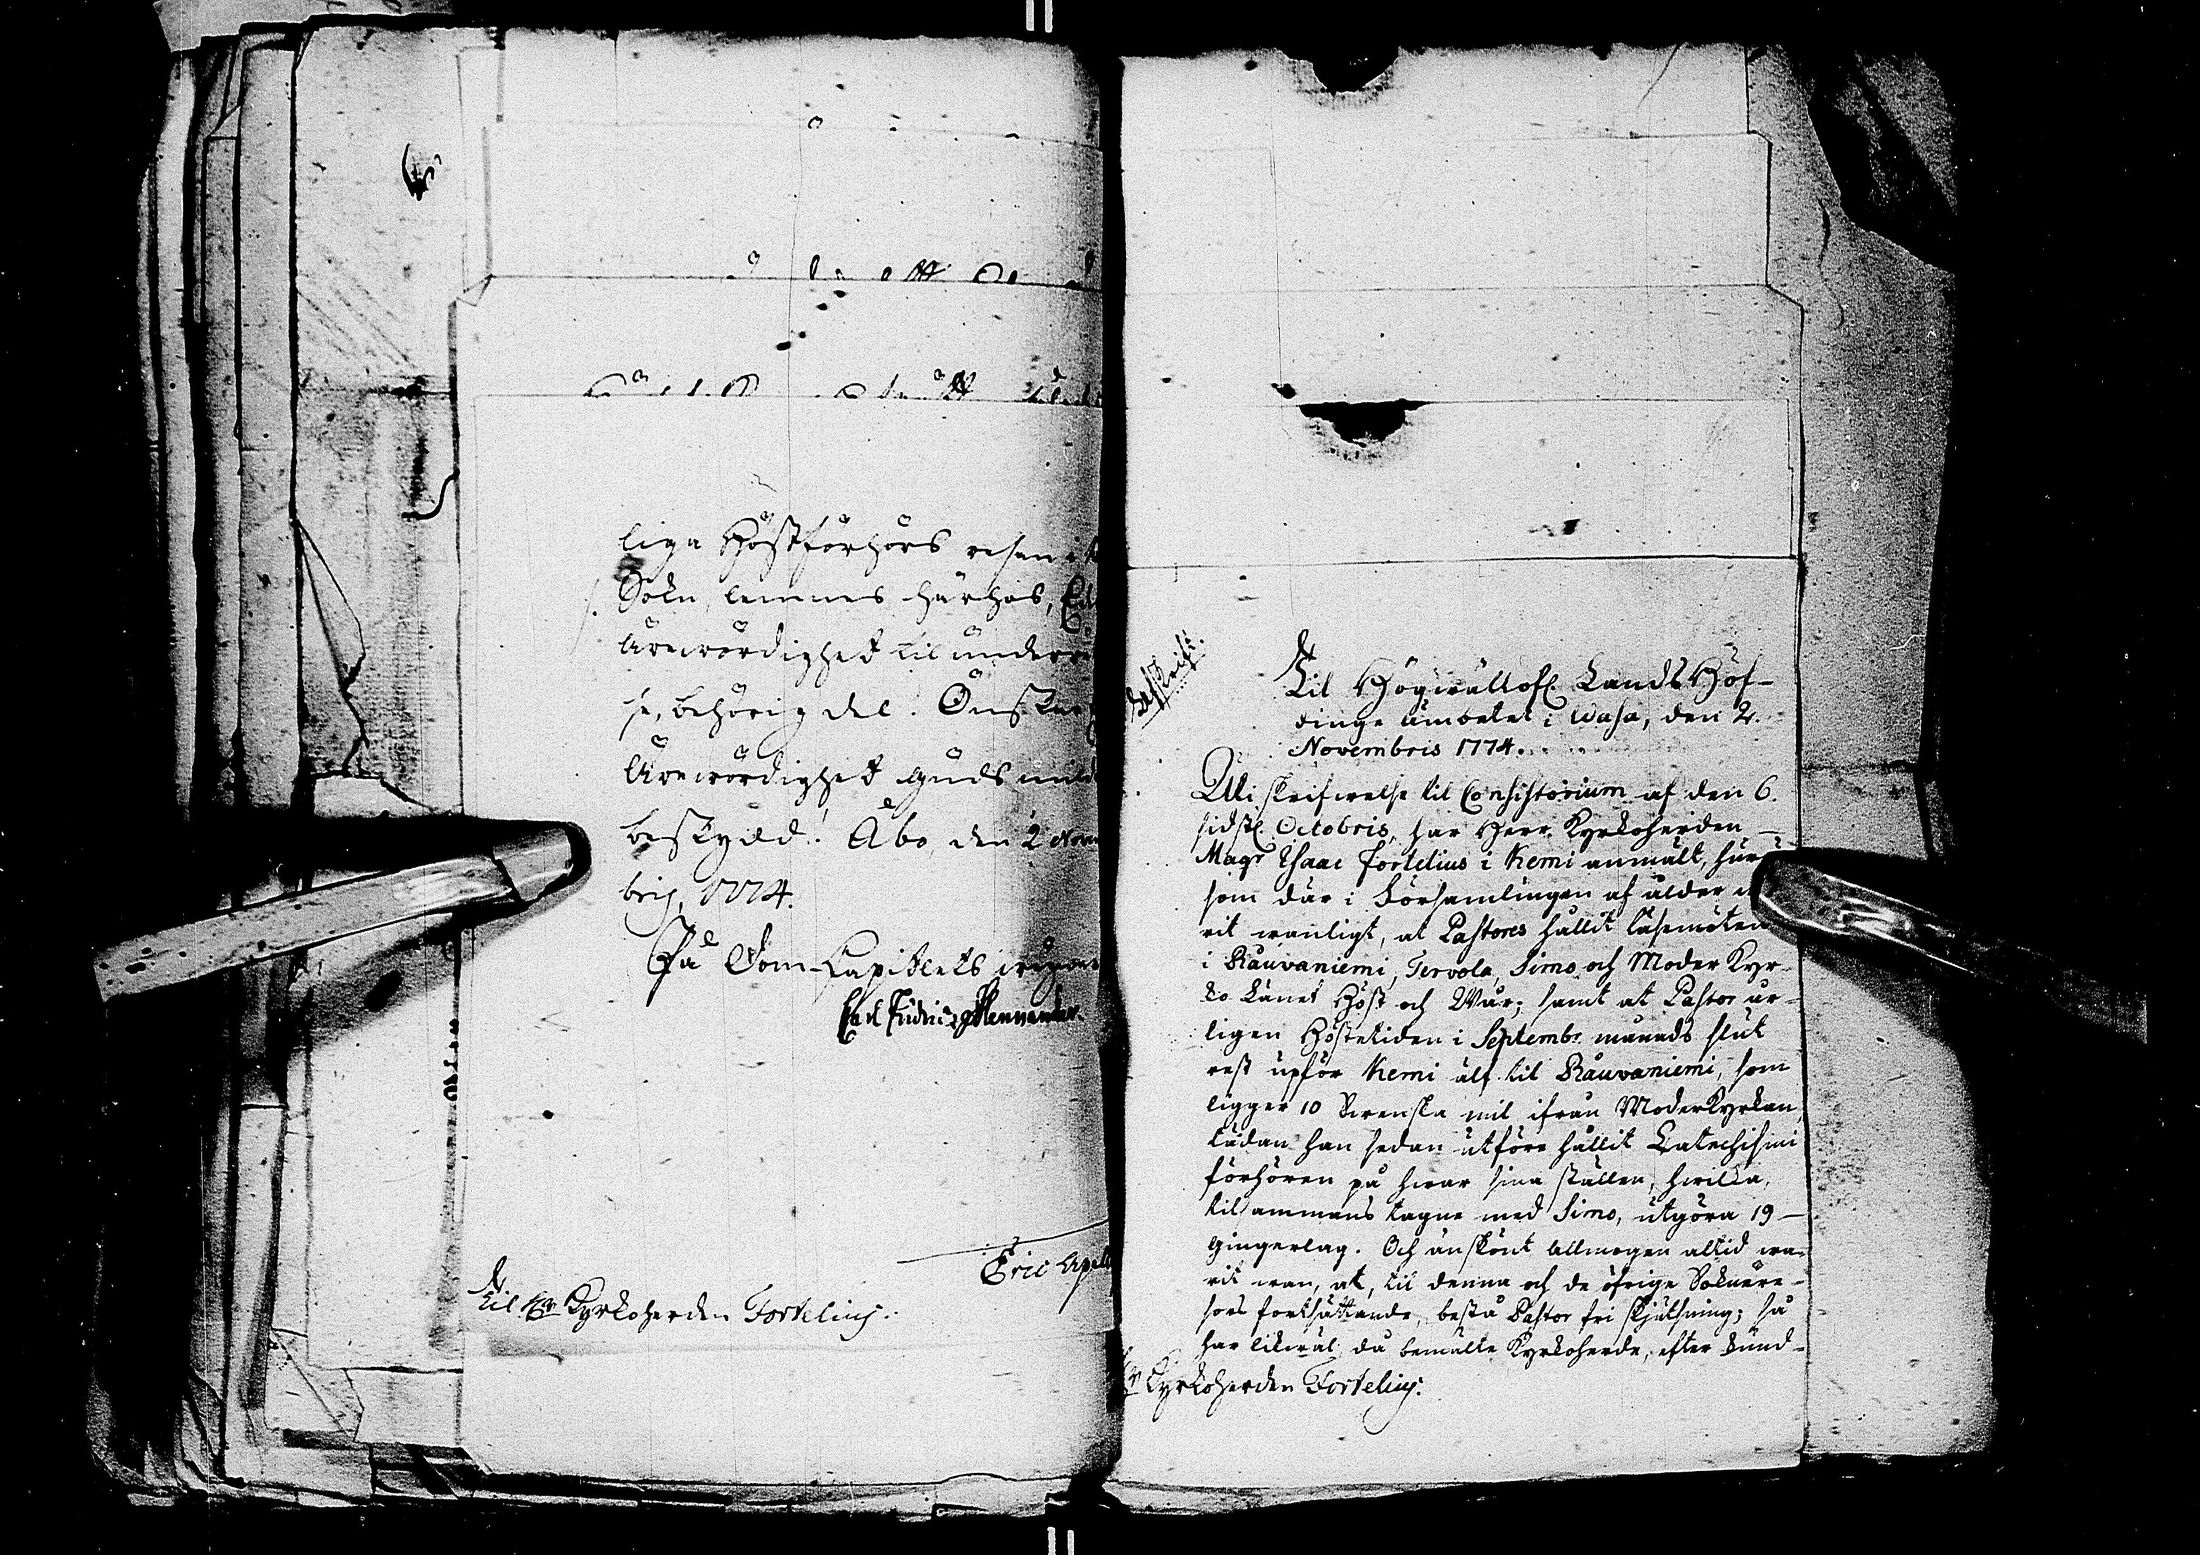 liga Höstförhörs resan i
Sokn, lemnes härhos,
ärewördighet til underrä
se, behörig del. Önskar
ärewördighet Guds milda
beskydd! Åbo, den 2 Novem
bris, 1774.
På Dom-Capitlets wägnar
Carl Fredric Mennander.
Eric
Til Hr Kyrkoherden Fortelius.
Afskrift.
Til Högwällofl. LandsHöf-
dinge ämbetet i Wasa, den 2.
Novembris 1774.
Uti skrifwelse til Consistorium af den 6.
sidstl. Octobris, har Herr Kyrkoherden
Magr Isaac Fortelius i Kemi anmält, huru
som där i Församlingen af ålder wa
rit wanligt, at Pastores hållit läsemöten
i Rauvaniemi, Tervola, Simo och Moder Kyr-
ko länet Höst och Wår; samt at Pastor år-
ligen Höstetiden i Septembr. månads slut
rest upför Kemi älf til Rauvaniemi, som
ligger 10 Swenska mil ifrån ModerKyrkan,
dädan han sedan utföre hållit Catechismi
förhören på hwar sina ställen, hwilka,
tilsammans tagne med Simo, utgöra 19
Gingerlag. Och änskönt Allmogen altid wa-
rit wan, at, til denna och de öfrige Sokne re-
sors fortsättande, bestå Pastor fri skjutsning; så
har likwäl, då bemälte Kyrkoherde, efter kund-
Hr Kyrkoherden Fortelius.